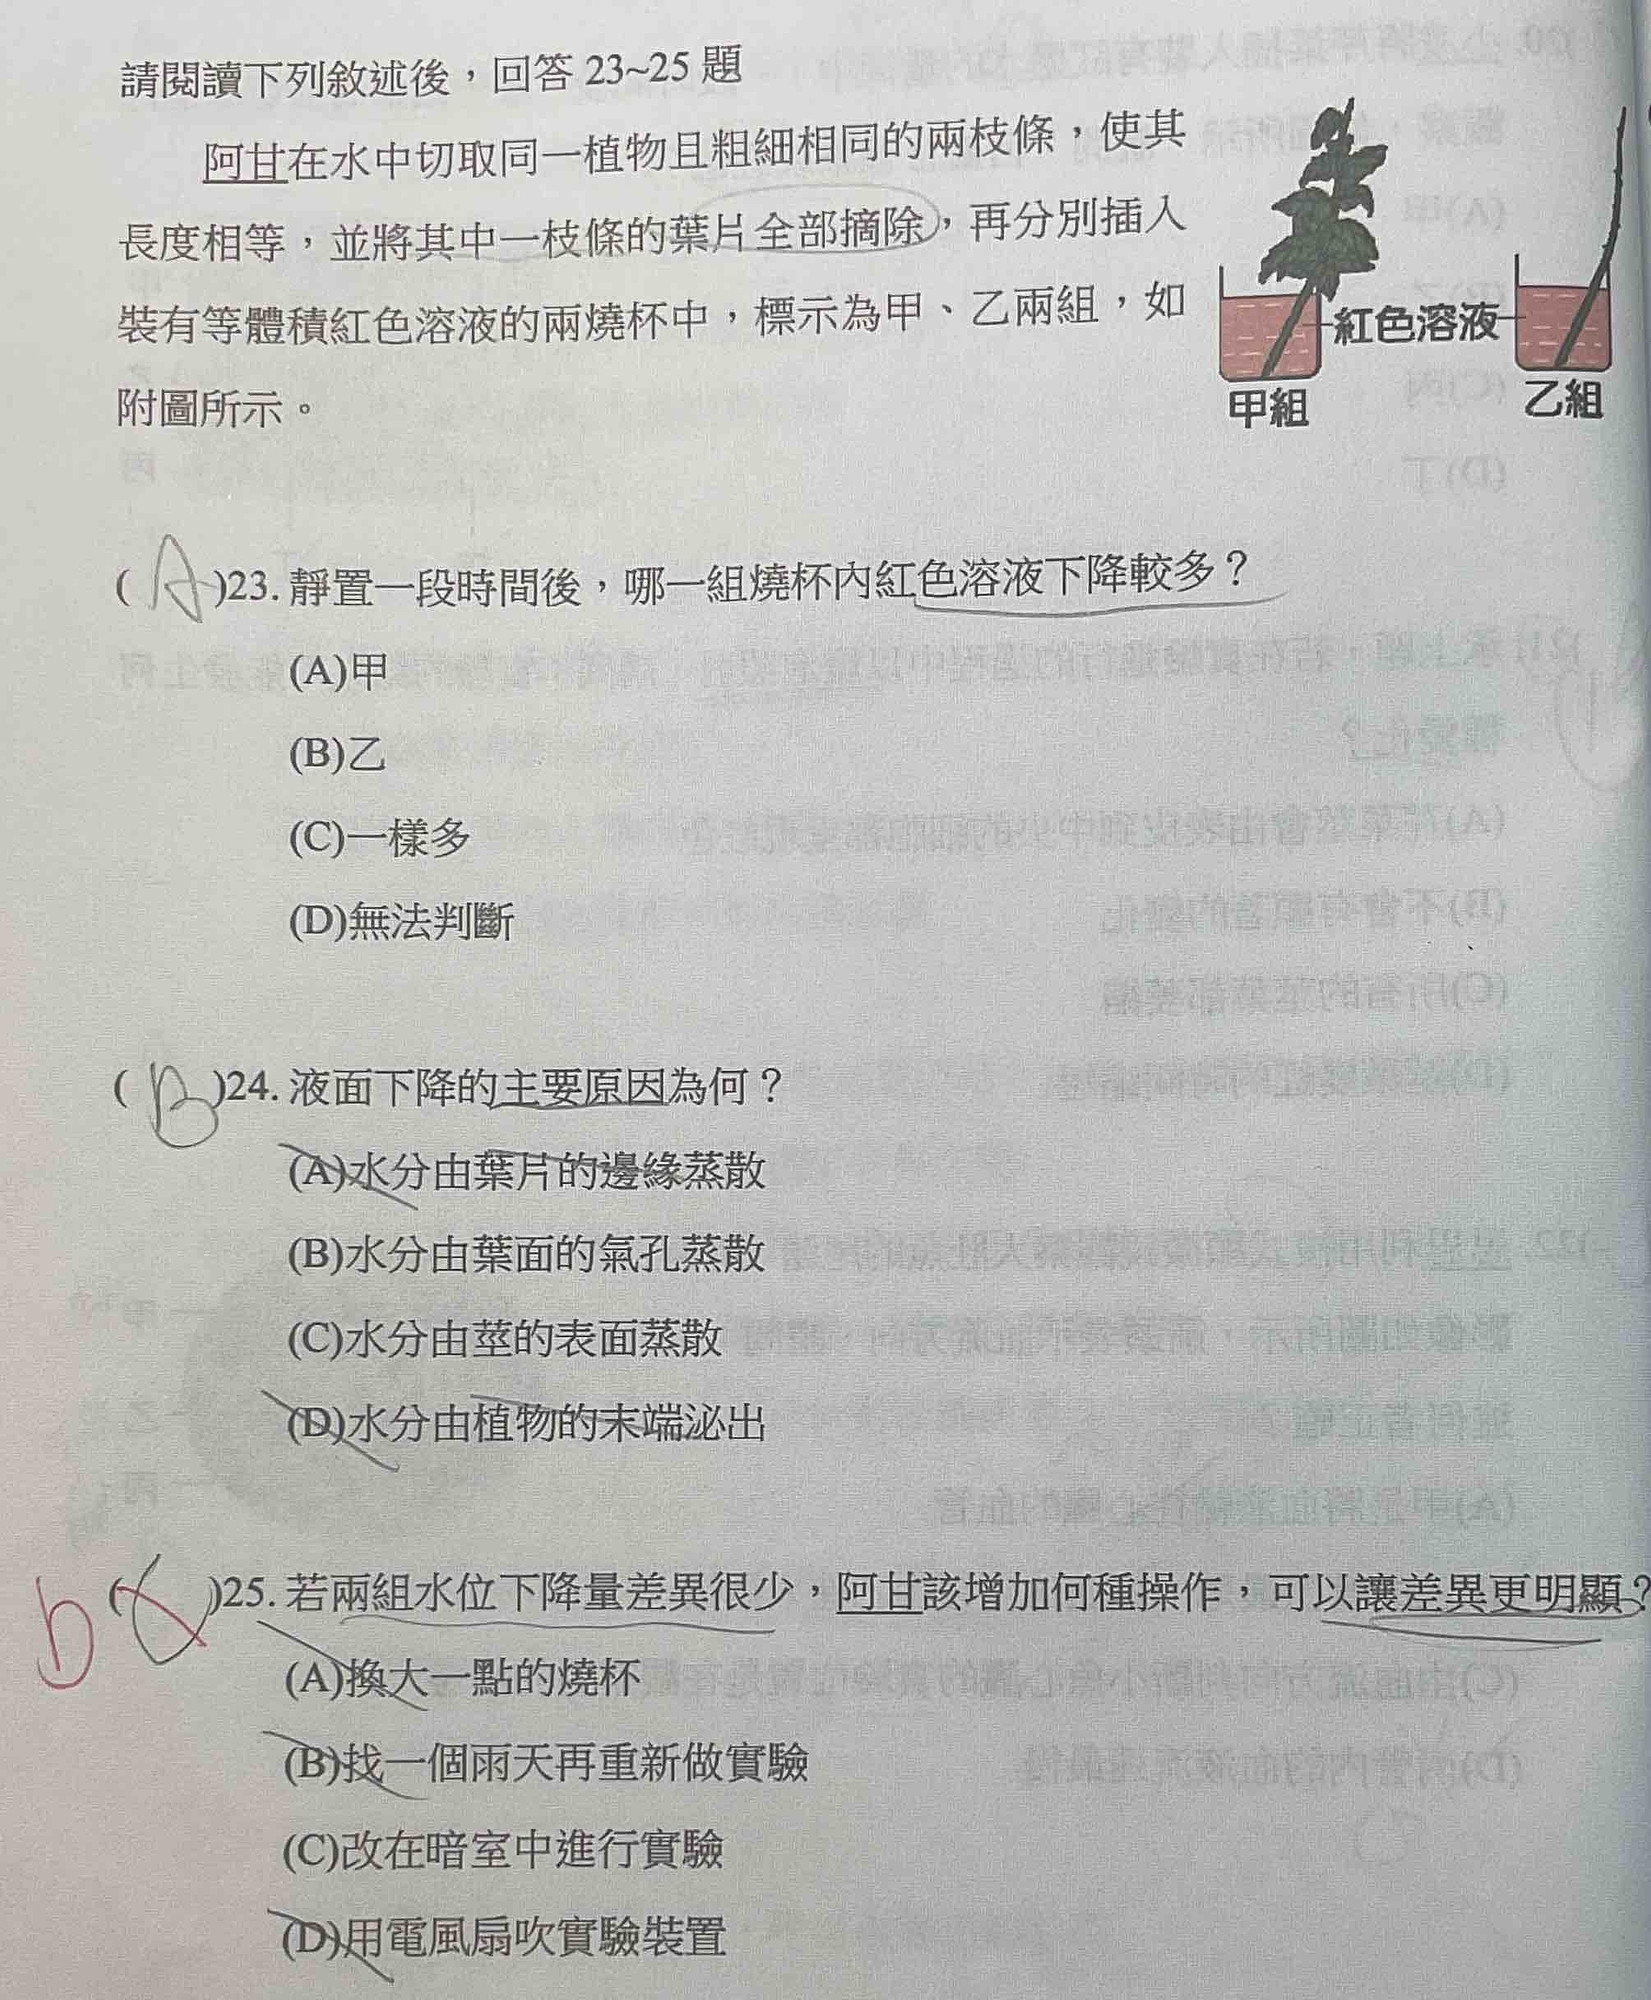 請閱讀下列敘述後，回答 23~25 題
阿甘在水中切取同一植物且粗細相同的兩枝條，使其
長度相等，並將其中一枝條的葉片全部摘除，再分別插入
裝有等體積紅色溶液的兩燒杯中，標示為甲、乙兩組，如
附圖所示。
紅色溶液
甲組
乙組
( A )23. 靜置一段時間後，哪一組燒杯內紅色溶液下降較多？
(A)甲
(B)乙
(C)一樣多
(D)無法判斷
( B )24. 液面下降的主要原因為何？
(A)水分由葉片的邊緣蒸散
(B)水分由葉面的氣孔蒸散
(C)水分由莖的表面蒸散
(D)水分由植物的末端泌出
( )25. 若兩組水位下降量差異很少，阿甘該增加何種操作，可以讓差異更明顯？
(A)換大一點的燒杯
(B)找一個雨天再重新做實驗
(C)改在暗室中進行實驗
(D)用電風扇吹實驗裝置